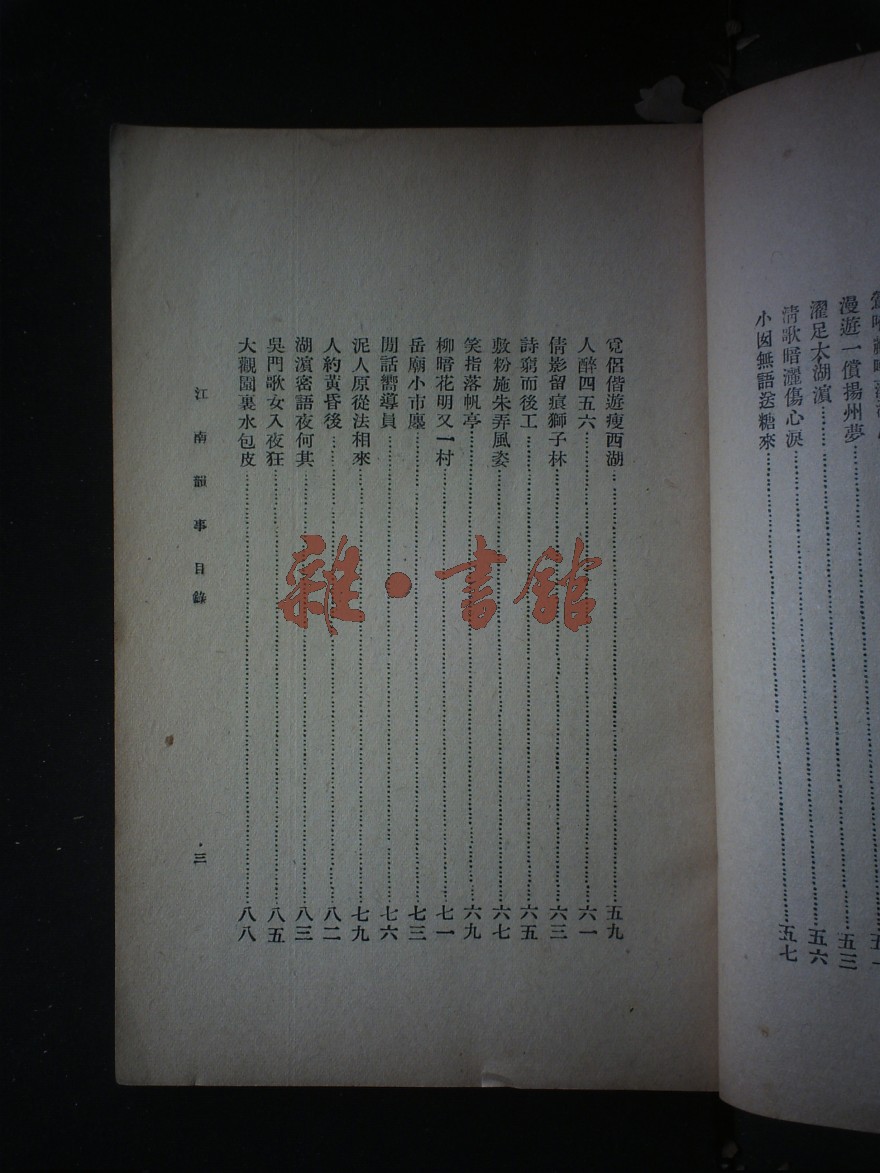 漫遊一償揚州夢……五三
濯足太湖濵……五六
清歌暗灑傷心淚
小囡無語送糖來……五七
覓侶偕遊瘦西湖……五九
人醉四五六……六一
倩影留痕獅子林……六三
詩窮而後工……六五
敷粉施朱弄風姿……六七
笑指落帆亭……六九
柳暗花明又一村……七一
岳廟小市廛……七三
閒話嚮導員……七六
泥人原從法相來……七九
人約黃昏後……八二
湖濵密語夜何其……八三
吳門歌女入夜狂……八五
大觀園裏水包皮……八八
江南 事目錄
三
雜·書館